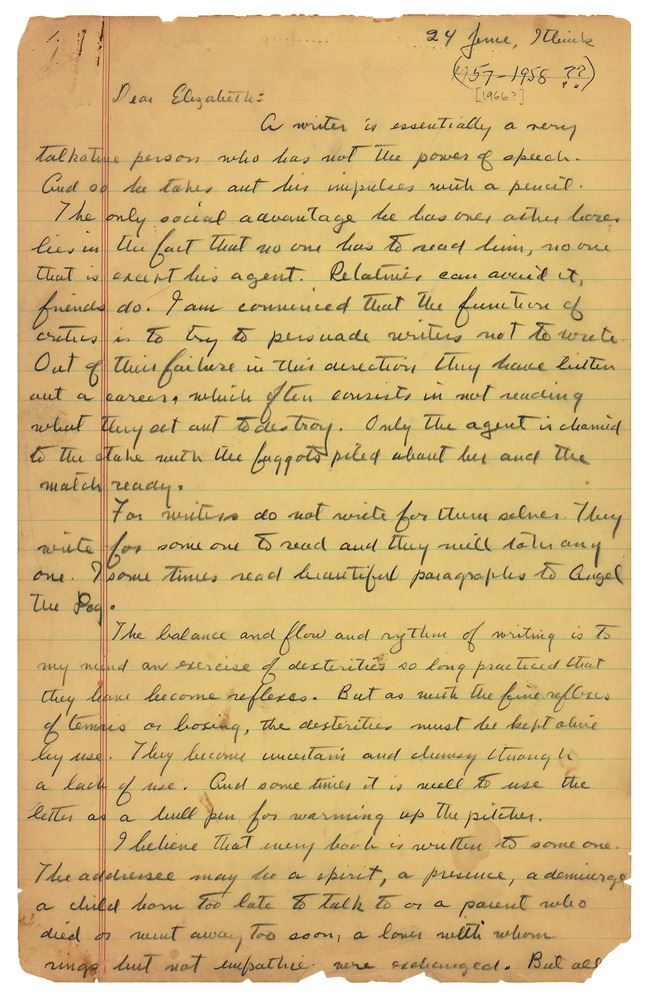 1,
24 June, I think
(1957-1958 ??)
[1966?]
Dear Elizabeth:
A writer is essentially a very
talkative person who has not the power of speech.
And so he takes out his impulses with a pencil.
The only social advantage he has over other bores
lies in the fact that no one has to read him, no one
that is except his agent. Relatives can avoid it,
friends do. I am convinced that the function of
critics is to try to persuade writers not to write.
Out of their failure in this direction they have
out a career, which often consists in not reading
what they set out to destroy. Only the agent is chained
to the stake with the faggots piled about her and the
match ready.
For writers do not write for them selves. They
write for some one to read and they will take any
one. I some times read beautiful paragraphs to Angel
the Dog.
The balance and flow and rythm of writing is to
my mind an exercise of dexterities so long practiced that
they have become reflexes. But as with the fine reflexes
of tennis or boxing, the dexterities must be kept alive
by use. They become uncertain and clumsy through
a lack of use. And some times it is well to use the
letter as a bull pen for warming up the pitcher.
I believe that every book is written to some one.
The addressee may be a spirit, a presence, a demiurge
a child born too late to talk to or a parent who
died or went away too soon, a lover with whom
rings but not empathic were exchanged. But all